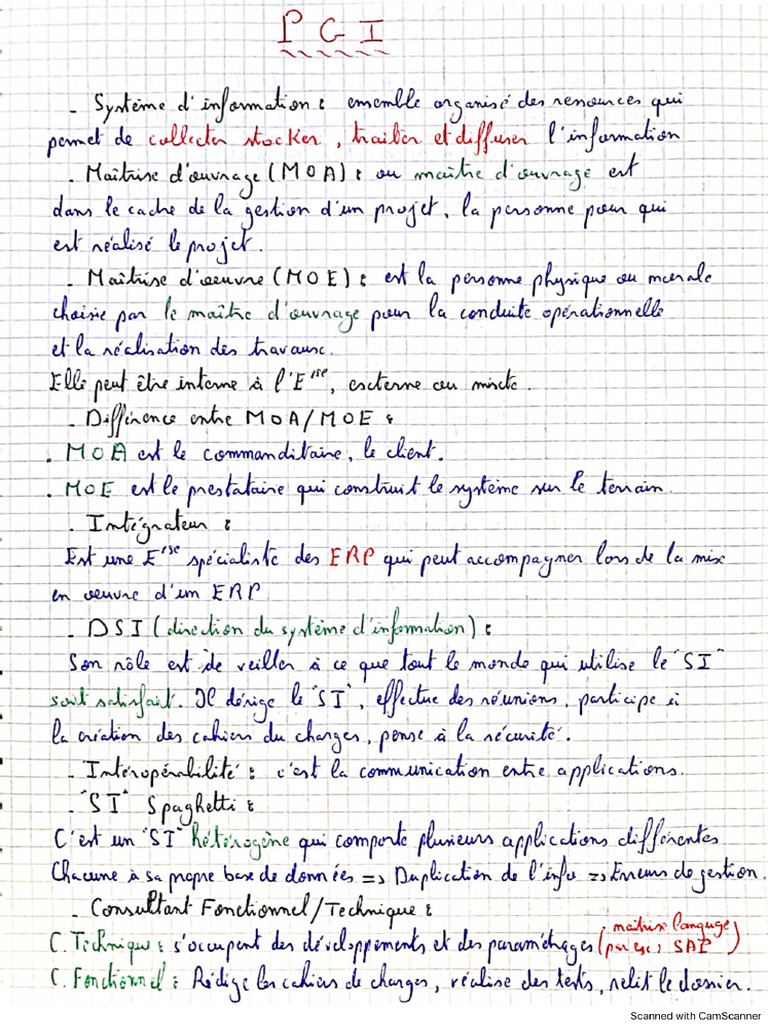 PGI
- Système d'information : ensemble organisé des ressources qui
permet de collecter stocker, traiter et diffuser l'information
- Maîtrise d'ouvrage (MOA) : ou maître d'ouvrage est
dans le cadre de la gestion d'un projet, la personne pour qui
est réalisé le projet.
- Maîtrise d'oeuvre (MOE) : est la personne physique ou morale
choisie par le maître d'ouvrage pour la conduite opérationnelle
et la réalisation des travaux.
Elle peut être interne à l'E^ise, externe ou mixte.
- Différence entre MOA/MOE :
. MOA est le commanditaire, le client.
. MOE est le prestataire qui construit le système sur le terrain.
- Intégrateur :
Est une E^ise spécialiste des ERP qui peut accompagner lors de la mise
en oeuvre d'un ERP
- DSI (direction du système d'information) :
Son rôle est de veiller à ce que tout le monde qui utilise le "SI"
soit satisfait. Il dérige le "SI", effectue des réunions, participe à
la création des cahiers du charges, pense à la sécurité.
- Intéropérabilité : c'est la communication entre applications.
- "SI" Spaghetti :
C'est un "SI" hétérogène qui comporte plusieurs applications différentes
Chacune à sa propre base de données => Duplication de l'info => Erreurs de gestion.
- Consultant Fonctionnel/Technique :
C. Technique : s'occupent des développements et des paramétrages (maitrise language
par ex : SAP)
C. Fonctionnel : Rédige les cahiers de charges, réalise des tests, relit le dossier.
Scanned with CamScanner